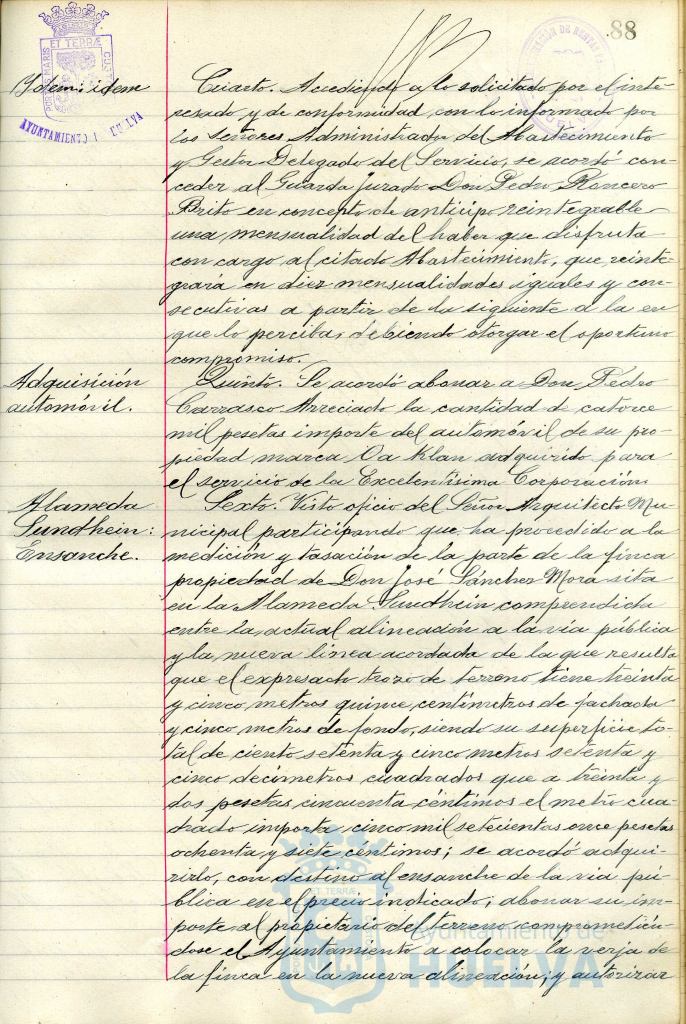 88
PORTUS MARIS ET TERRÆ CUSTODIA
AYUNTAMIENTO HUELVA
Idem: idem
Cuarto. Accediendo a lo solicitado por el inte-
resado y de conformidad con lo informado por
los señores Administrador del Abastecimiento
y Gestor Delegado del Servicio, se acordó con-
ceder al Guarda Jurado Don Pedro Roncero
Brito en concepto de anticipo reintegrable
una mensualidad del haber que disfruta
con cargo al citado Abastecimiento, que reinte-
grará en diez mensualidades iguales y con-
secutivas a partir de la siguiente a la en
que lo perciba, debiendo otorgar el oportuno
compromiso.
Adquisición
automóvil.
Quinto. Se acordó abonar a Don Pedro
Carrasco Arreciado la cantidad de catorce
mil pesetas importe del automóvil de su pro-
piedad marca Oa Klan adquirido para
el servicio de la Excelentísima Corporación
Alameda
Sundhein:
Ensanche.
Sexto. Visto oficio del Señor Arquitecto Mu-
nicipal participando que ha procedido a la
medición y tasación de la parte de la finca
propiedad de Don José Sánchez Mora sita
en la Alameda Sundhein comprendida
entre la actual alineación a la vía pública
y la nueva línea acordada de la que resulta
que el expresado trozo de terreno tiene treinta
y cinco metros quince centímetros de fachada
y cinco metros de fondo, siendo su superficie to-
tal de ciento setenta y cinco metros setenta y
cinco decímetros cuadrados que a treinta y
dos pesetas cincuenta céntimos el metro cua-
drado importa cinco mil setecientas once pesetas
ochenta y siete céntimos; se acordó adqui-
rirlo, con destino al ensanche de la vía pú-
blica en el precio indicado; abonar su im-
porte al propietario del terreno comprometién-
dose el Ayuntamiento a colocar la verja de
la finca en la nueva alineación; y autorizar
ET TERRÆ
Ayuntamiento de
HUELVA